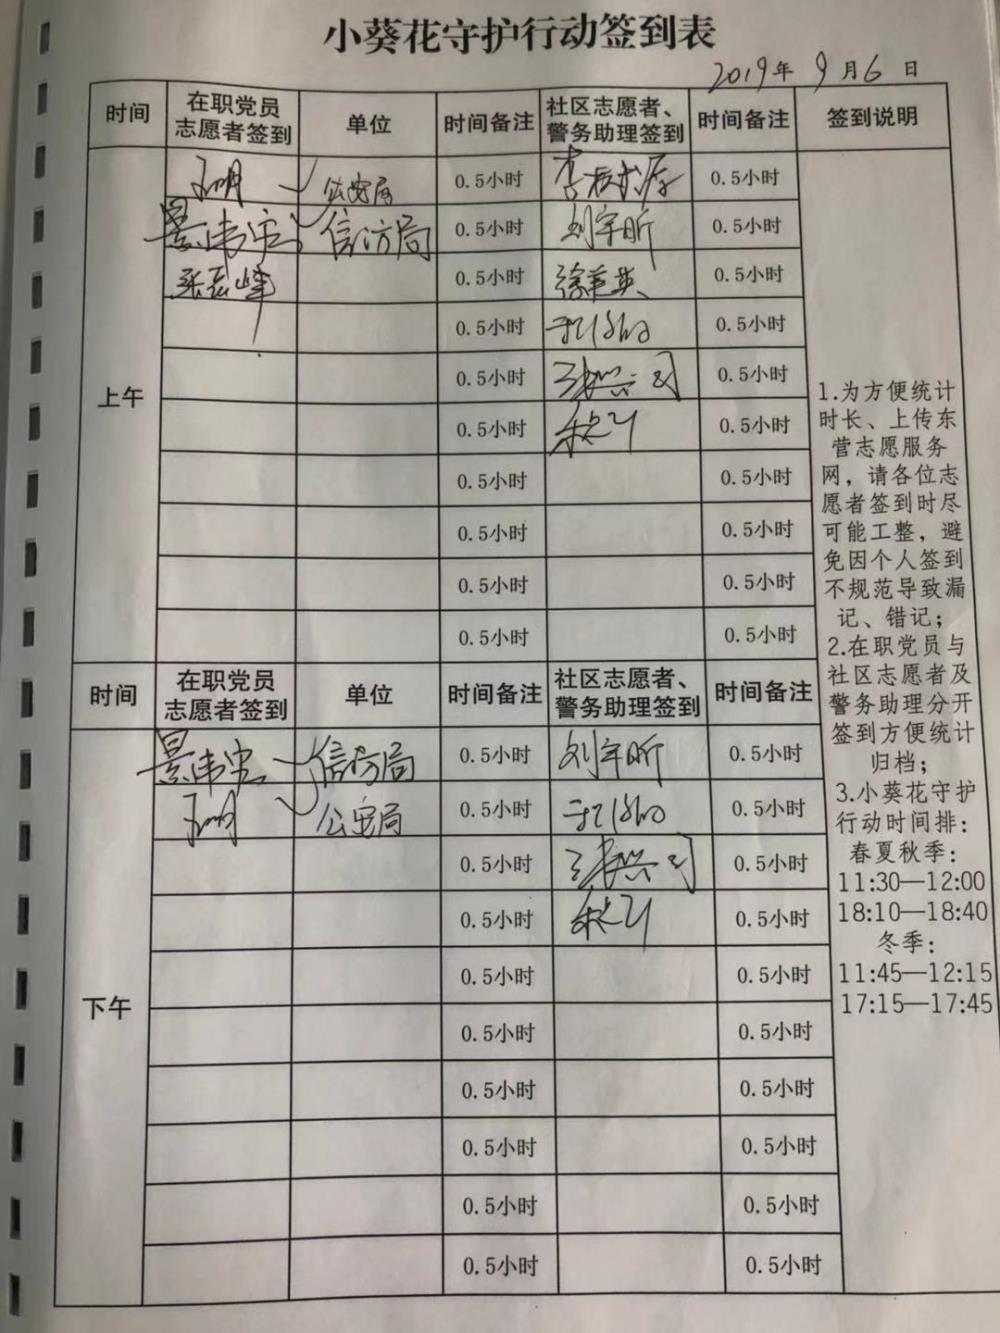 小葵花守护行动签到表
2019年 9月6日
时间 在职党员志愿者签到 单位 时间备注 社区志愿者、警务助理签到 时间备注 签到说明
上午
公安局 0.5小时 0.5小时
景伟宏 信访局 0.5小时 刘宇昕 0.5小时
0.5小时 徐美英 0.5小时
0.5小时 0.5小时
0.5小时 0.5小时
0.5小时 0.5小时
0.5小时 0.5小时
0.5小时 0.5小时
0.5小时 0.5小时
0.5小时 0.5小时
时间 在职党员志愿者签到 单位 时间备注 社区志愿者、警务助理签到 时间备注
下午
景伟宏 信访局 0.5小时 刘宇昕 0.5小时
公安局 0.5小时 0.5小时
0.5小时 0.5小时
0.5小时 0.5小时
0.5小时 0.5小时
0.5小时 0.5小时
0.5小时 0.5小时
0.5小时 0.5小时
0.5小时 0.5小时
0.5小时 0.5小时
1.为方便统计
时长、上传东
营志愿服务
网，请各位志
愿者签到时尽
可能工整，避
免因个人签到
不规范导致漏
记、错记；
2.在职党员与
社区志愿者及
警务助理分开
签到方便统计
归档；
3.小葵花守护
行动时间排：
春夏秋季：
11:30—12:00
18:10—18:40
冬季：
11:45—12:15
17:15—17:45